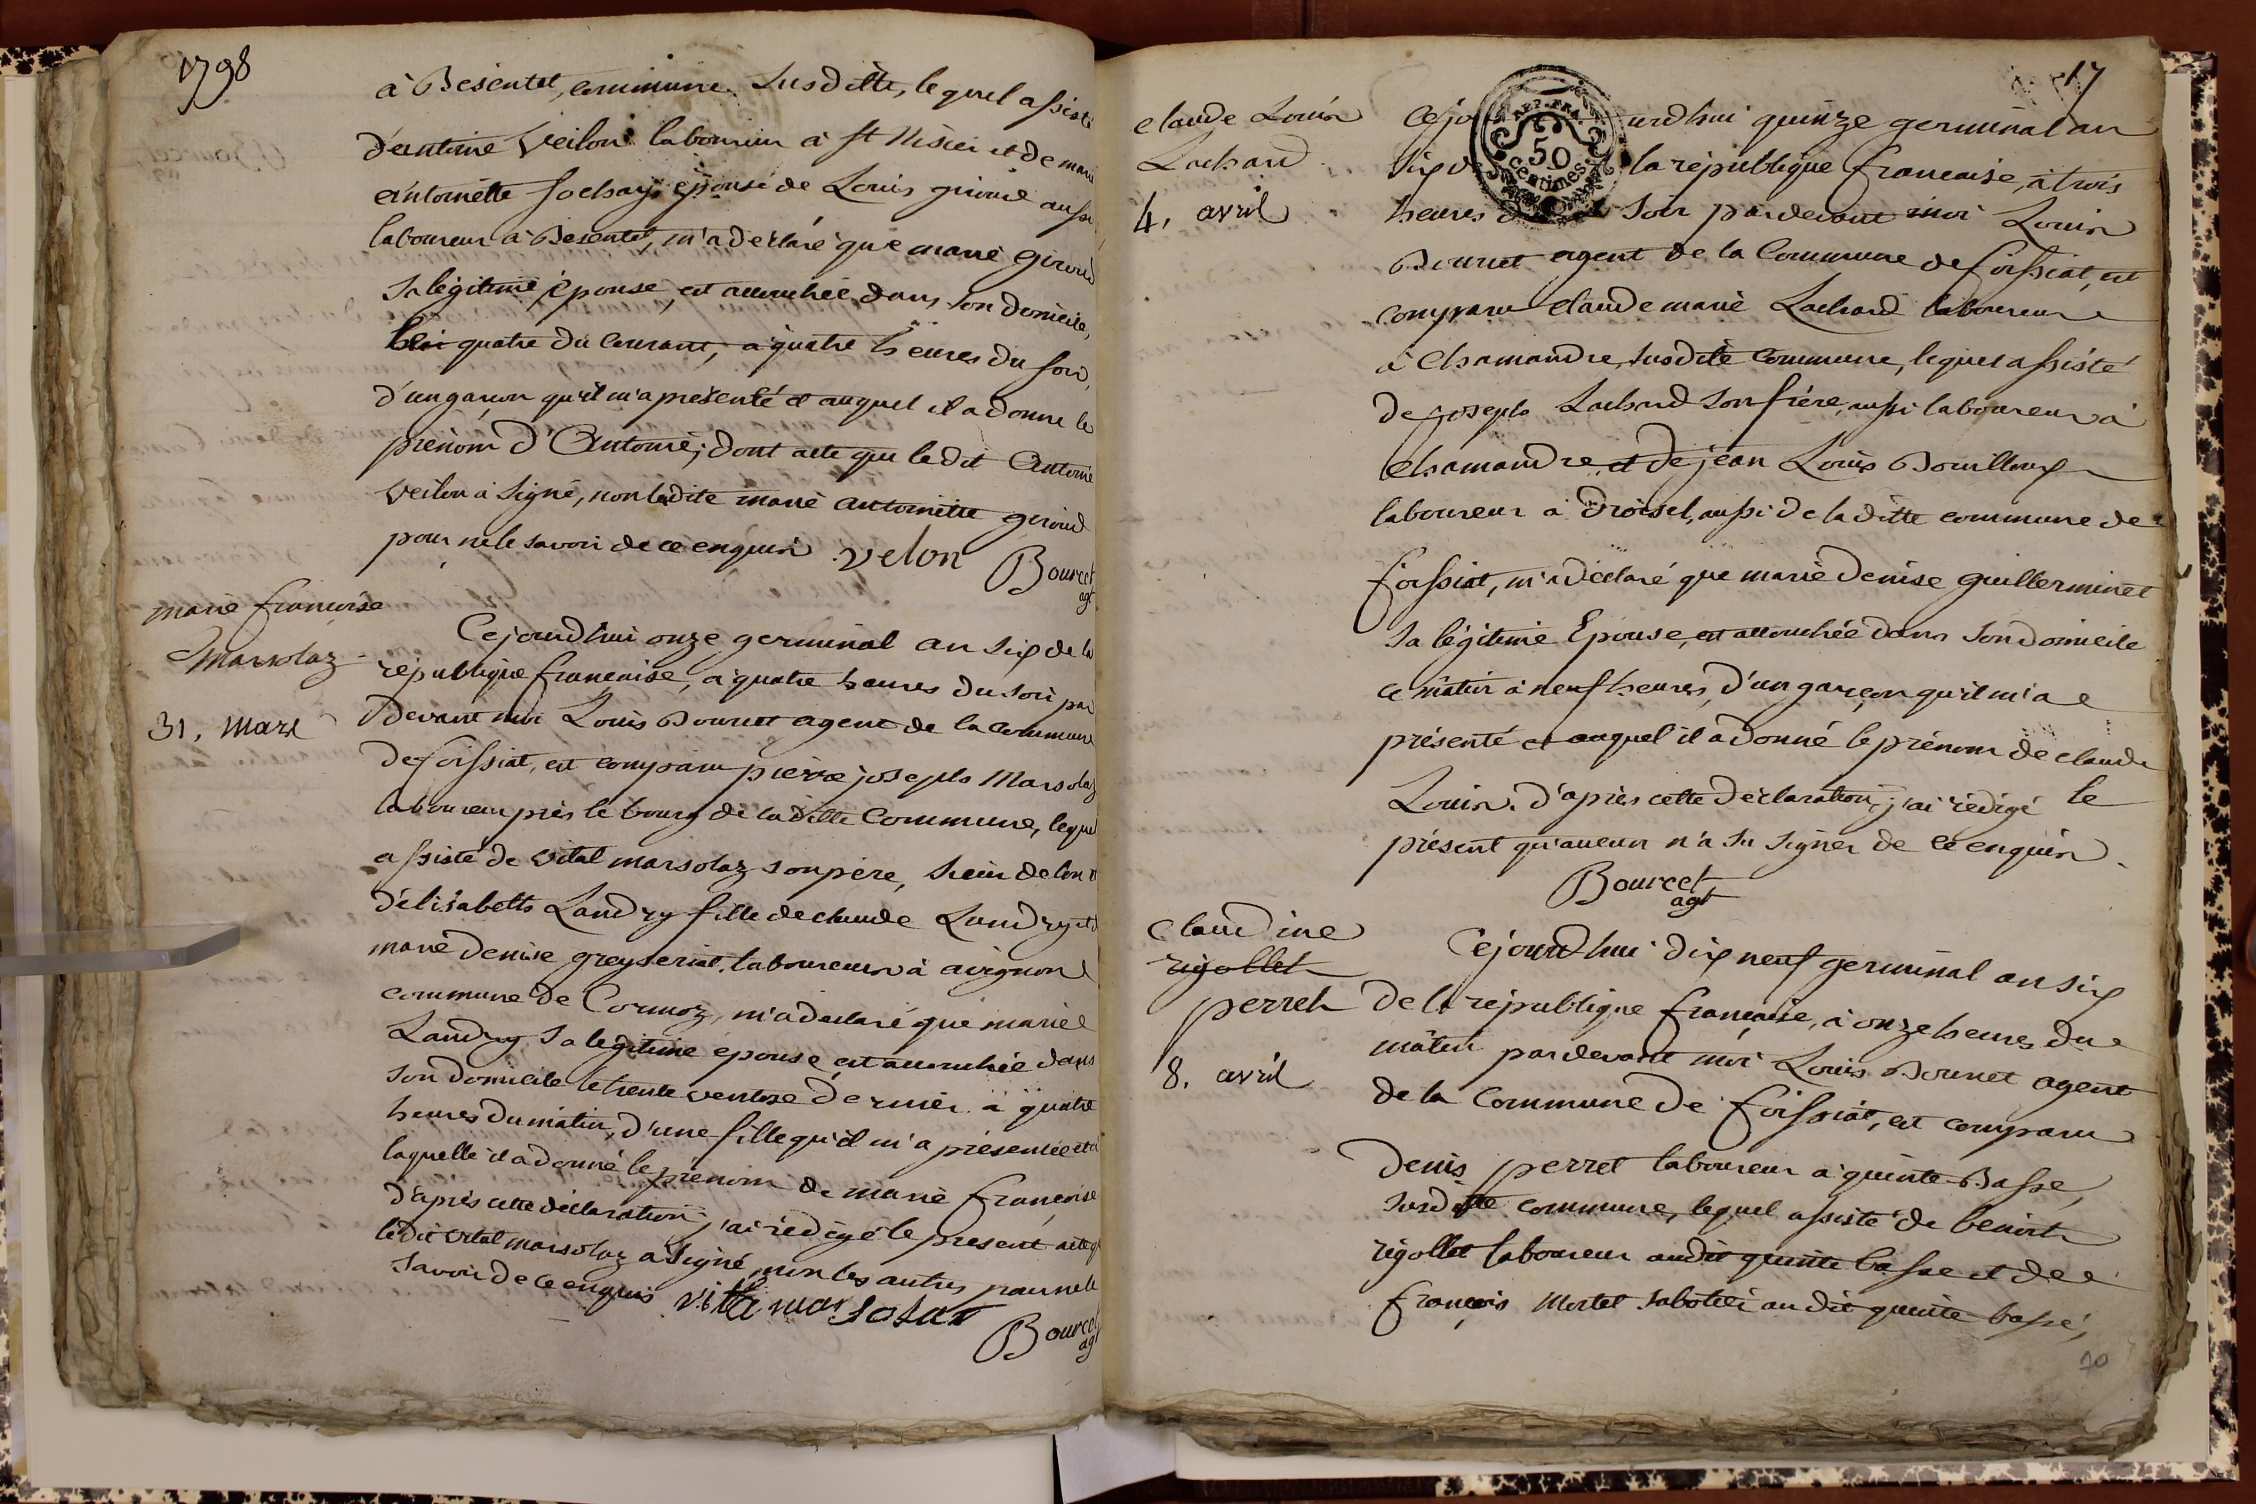 1798
à Besentet, commune susditte, lequel assisté
d'antoine Veilon laboureur à st Nisier et de marie
antoinette Jochay, épouse de Louis giroud aussi
laboureur à Besentet, m'a déclaré que marie giroud
sa légitime épouse, est accouchée dans son domicile,
hier quatre du courant, à quatre heures du soir,
d'un garcon qu'il m'a présenté et auquel il a donné le
prénom d'Antoine; dont acte que le dit Antoine
veilon a signé, non ladite marie antoinette giroud
pour ne le savoir de ce enquis velon Bourcet
agt
marie françoise
Marsolaz
31. mars
Cejourd'hui onze germinal an six de la
république francaise, à quatre heures du soir par
devant moi Louis Bourcet agent de la commune
de foissiat, est comparu pierre joseph Marsolaz
laboureur près le bourg de la ditte Commune, lequel
assisté de vital marsolaz son père, de lon
d'élisabeth Landry fille de claude Landry et
marie denise greyseriat, laboureur à avignon
commune de Cormoz, m'a déclaré que marie
Landry sa légitime epouse est accouchée dans
son domicile le trente ventose dernier à quatre
heures du matin, d'une fille qu'il m'a présentée et à
laquelle il a donné le prénom de marie françoise
d'après cette déclaration j'ai rédigé le présent acte q
ledit vital marsolaz a signé, non les autres pour ne le
savoir de ce enquis vital marsolat
Bourcet
agt
17
claude Louis
Lachard
4. avril
REP. FRA.
50
centimes
Cejourdhui quinze germinal an
six de la république francaise, à trois
heures du soir pardevant moi Louis
Bourcet agent de la Commune de foissiat, est
comparu claude marie Lachard laboureur
à Chamandre, susdite commune, lequel assisté
de joseph Lachard son frère, aussi laboureur à
Chamandre, et de jean Louis Bouilloux
laboureur à Droiset, aussi de la ditte commune de
foissiat, m'a déclaré que marie denise guillerminet
sa légitime Epouse, est accouchée dans son domicile
ce matin à neuf heures, d'un garçon qu'il m'a
présenté et auquel il a donné le prénom de claude
Louis. d'après cette déclaration, j'ai rédigé le
présent qu'aucun n'a su signer de ce enquis.
Bourcet
agt
Claudine
rigollet
perret
8. avril
Cejourd'hui dix neuf germinal an six
de la république française, à onze heures du
matin pardevant moi Louis Bourcet agent
de la Commune de foissiat, est comparu
denis perret laboureur à quinte Basse,
susditte commune, lequel assisté de benoit
rigollet laboureur audit quinte basse et de
françois Mortel sabotier au dit quinte basse,
10